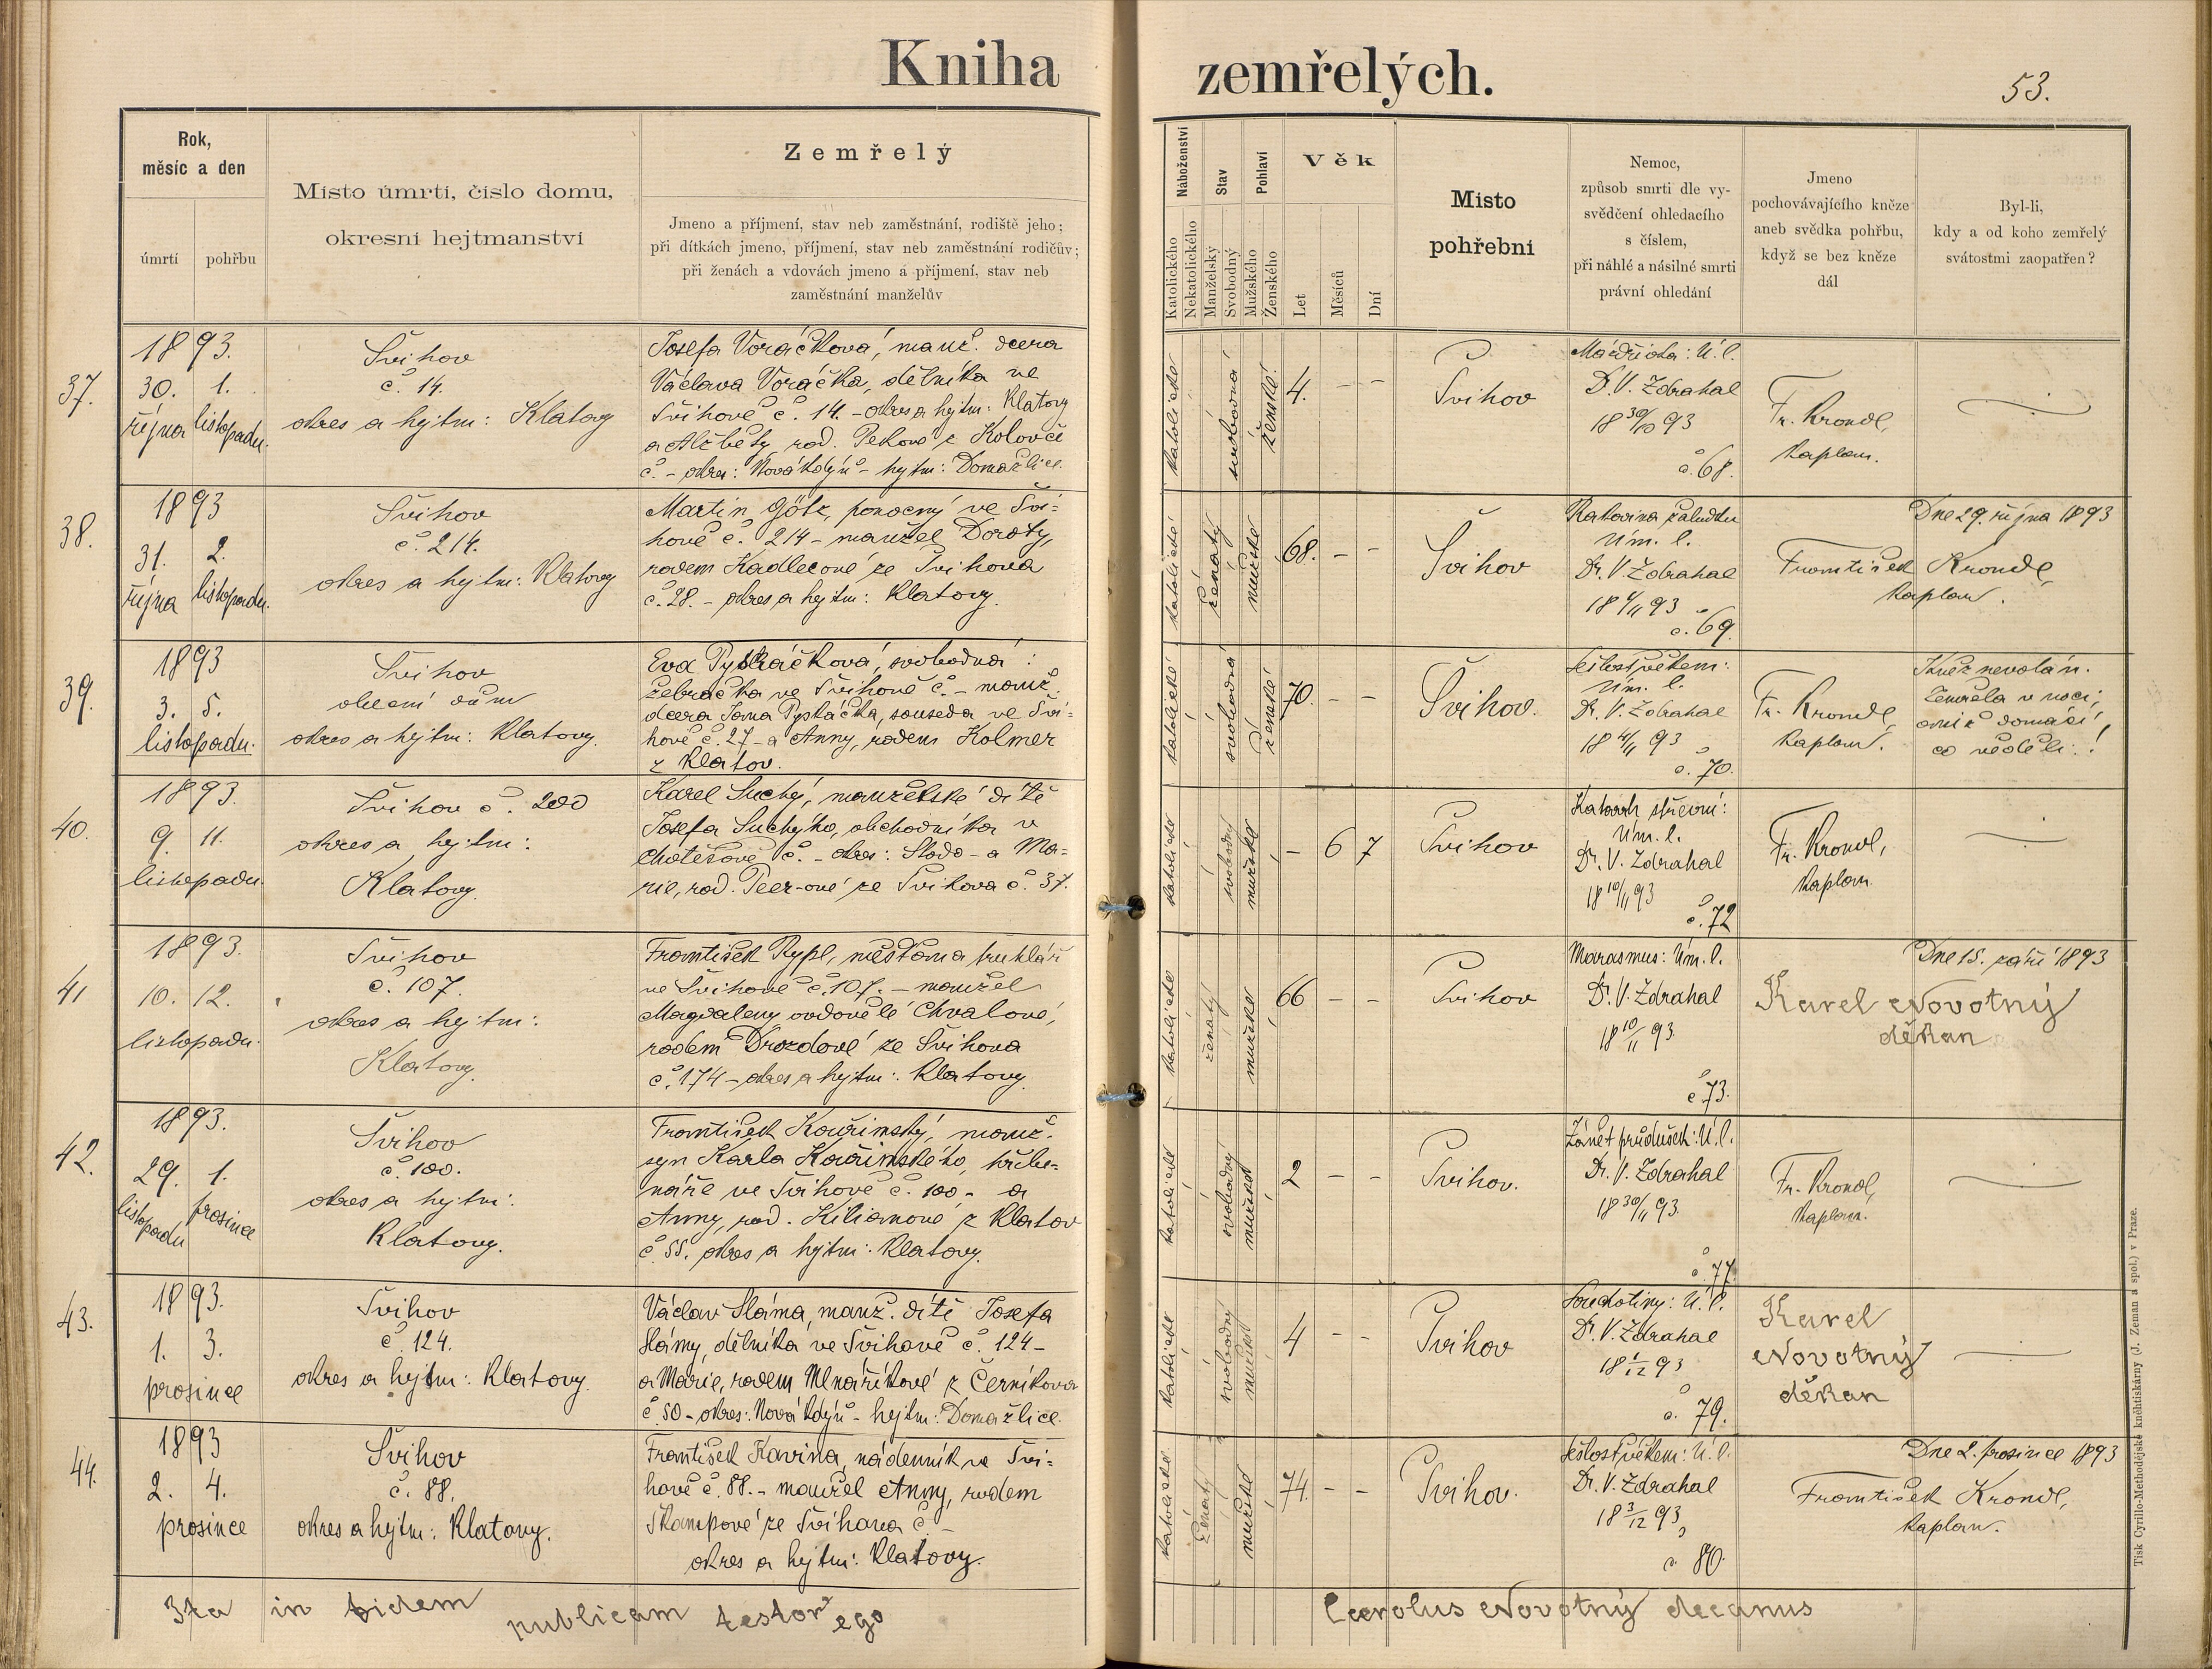 Kniha zemřelých.
53.
Rok,
měsíc a den
úmrtí
pohřbu
Místo úmrtí, číslo domu,
okresní hejtmanství
Zemřelý
Jmeno a příjmení, stav neb zaměstnání, rodiště jeho;
při dítkách jmeno, příjmení, stav neb zaměstnání rodičův;
při ženách a vdovách jmeno a příjmení, stav neb
zaměstnání manželův
Náboženství
Katolického
Nekatolického
Stav
Manželský
Svobodný
Pohlaví
Mužského
Ženského
Věk
Let
Měsíců
Dní
Místo
pohřební
Nemoc,
způsob smrti dle vy-
svědčení ohledacího
s číslem,
při náhlé a násilné smrti
právní ohledání
Jmeno
pochovávajícího kněze
aneb svědka pohřbu,
když se bez kněze
dál
Byl-li,
kdy a od koho zemřelý
svátostmi zaopatřen?
37.
1893.
30. 1.
října listopadu.
Švihov
č. 14.
okres a hejtm: Klatovy
Josefa Voráčková, manž. dcera
Václava Voráčka, dělníka ve
Švihově č. 14. - okres a hejtm: Klatovy
a Alžběty, rod. Pekové z Kolovče
č. - okres: Nová Kdýň - hejtm: Domažlice.
katolické
svobodná
ženské.
4. - -
Švihov
Ú. l.
Dr. V. Zdrahal
18 30/10 93
č. 68.
Fr. Krondl,
kaplan.
38.
1893
31. 2.
října listopadu.
Švihov
č. 214.
okres a hejtm: Klatovy
Martin Götz, ponocný ve Švi-
hově č. 214 - manžel Doroty,
rodem Kadlecové ze Švihova
č. 28. - okres a hejtm: Klatovy.
katolické
ženatý
mužské
68. - -
Švihov
Rakovina žaludku
Úm. l.
Dr. V. Zdrahal
18 1/11 93
č. 69.
Dne 29. října 1893
František Krondl,
kaplan.
39.
1893
3. 5.
listopadu.
Švihov
obecní dům
okres a hejtm: Klatovy.
Eva Pytláčková, svobodná:
žebračka ve Švihově č. - manž.
dcera Jana Pytláčka, souseda ve Švi-
hově č. 27 - a Anny, rodem Kolmer
z Klatov.
katolické
svobodná
ženské
70. - -
Švihov.
Sešlost věkem:
Úm. l.
Dr. V. Zdrahal
18 4/11 93
č. 70.
Fr. Krondl,
kaplan.
Kněz nevolán.
Zemřela v noci;
aniž domácí
co věděli!
40.
1893.
9. 11.
listopadu.
Švihov č. 200
okres a hejtm:
Klatovy
Karel Suchý, manželské dítě
Josefa Suchýho, obchodníka v
Chotěšově č. - okres: Stodo - a Ma-
rie, rod. Peer-ové ze Švihova č. 37.
katolické
svobodný
mužské
- 6 7
Švihov
Katarrh střevní:
Úm. l.
Dr. V. Zdrahal
18 10/11 93
č. 72
Fr. Krondl,
kaplan.
41
1893.
10. 12.
listopadu.
Švihov
č. 107.
okres a hejtm:
Klatovy.
František Rypl, měšťan a truhlář
ve Švihově č. 107. - manžel
Magdaleny ovdovělé Chvalové,
rodem Drozdové ze Švihova
č. 174 - okres a hejtm: Klatovy.
katolické
ženatý
mužské
66 - -
Švihov
Marasmus: Úm. l.
Dr. V. Zdrahal
18 10/11 93.
č. 73.
Dne 15. září 1893
Karel Novotný
děkan
42.
1893.
29. 1.
listopadu prosince
Švihov
č. 100.
okres a hejtm:
Klatovy.
František Kouřimský, manž.
syn Karla Kouřimského, hřebe-
náře ve Švihově č. 100 - a
Anny, rod. Kilianové z Klatov
č. 55. okres a hejtm: Klatovy.
katolické
svobodný
mužské
2 - -
Švihov.
Zánět průdušek: Ú. l.
Dr. V. Zdrahal
18 30/11 93.
č. 77.
Fr. Krondl,
kaplan.
43.
1893.
1. 3.
prosince
Švihov
č. 124.
okres a hejtm: Klatovy.
Václav Sláma, manž. dítě Josefa
Slámy, dělníka ve Švihově č. 124 -
a Marie, rodem Mlnaříkové z Černíkova
č. 50 - okres: Nová Kdýň - hejtm: Domažlice.
katolické
svobodný
mužské
4 - -
Švihov
Souchotiny: Ú. l.
Dr. V. Zdrahal
18 1/12 93
č. 79.
Karel
Novotný
děkan
44.
1893
2. 4.
prosince
Švihov
č. 88.
okres a hejtm: Klatovy.
František Kavina, nádenník ve Švi-
hově č. 88. - manžel Anny, rodem
Škampové ze Švihova č. -
okres a hejtm: Klatovy.
katolické
ženatý
mužské
74. - -
Švihov.
Sešlost věkem: Ú. l.
Dr. V. Zdrahal
18 3/12 93
č. 80.
Dne 2. prosince 1893
František Krondl,
kaplan.
Ita in fidem publicam testor ego Carolus Novotný decanus
Tisk Cyrillo-Methodějské knihtiskárny (J. Zeman a spol.) v Praze.